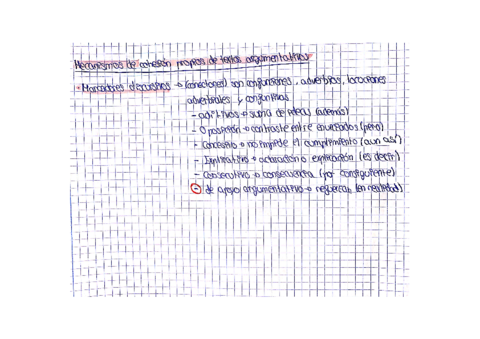 Mecanismos de cohesión propios de textos argumentativos
• Marcadores discursivos → (conectores) son conjunciones, adverbios, locuciones
adverbiales y conjuntivas
- aditivos → suma de ideas (además)
- Oposición → contraste entre enunciados (pero)
- Concesivo → no impide el cumplimiento (aun así)
- → aclaración o explicación (es decir)
- Consecutivo → consecuencia (por consiguiente)
- de apoyo argumentativo → (en realidad)